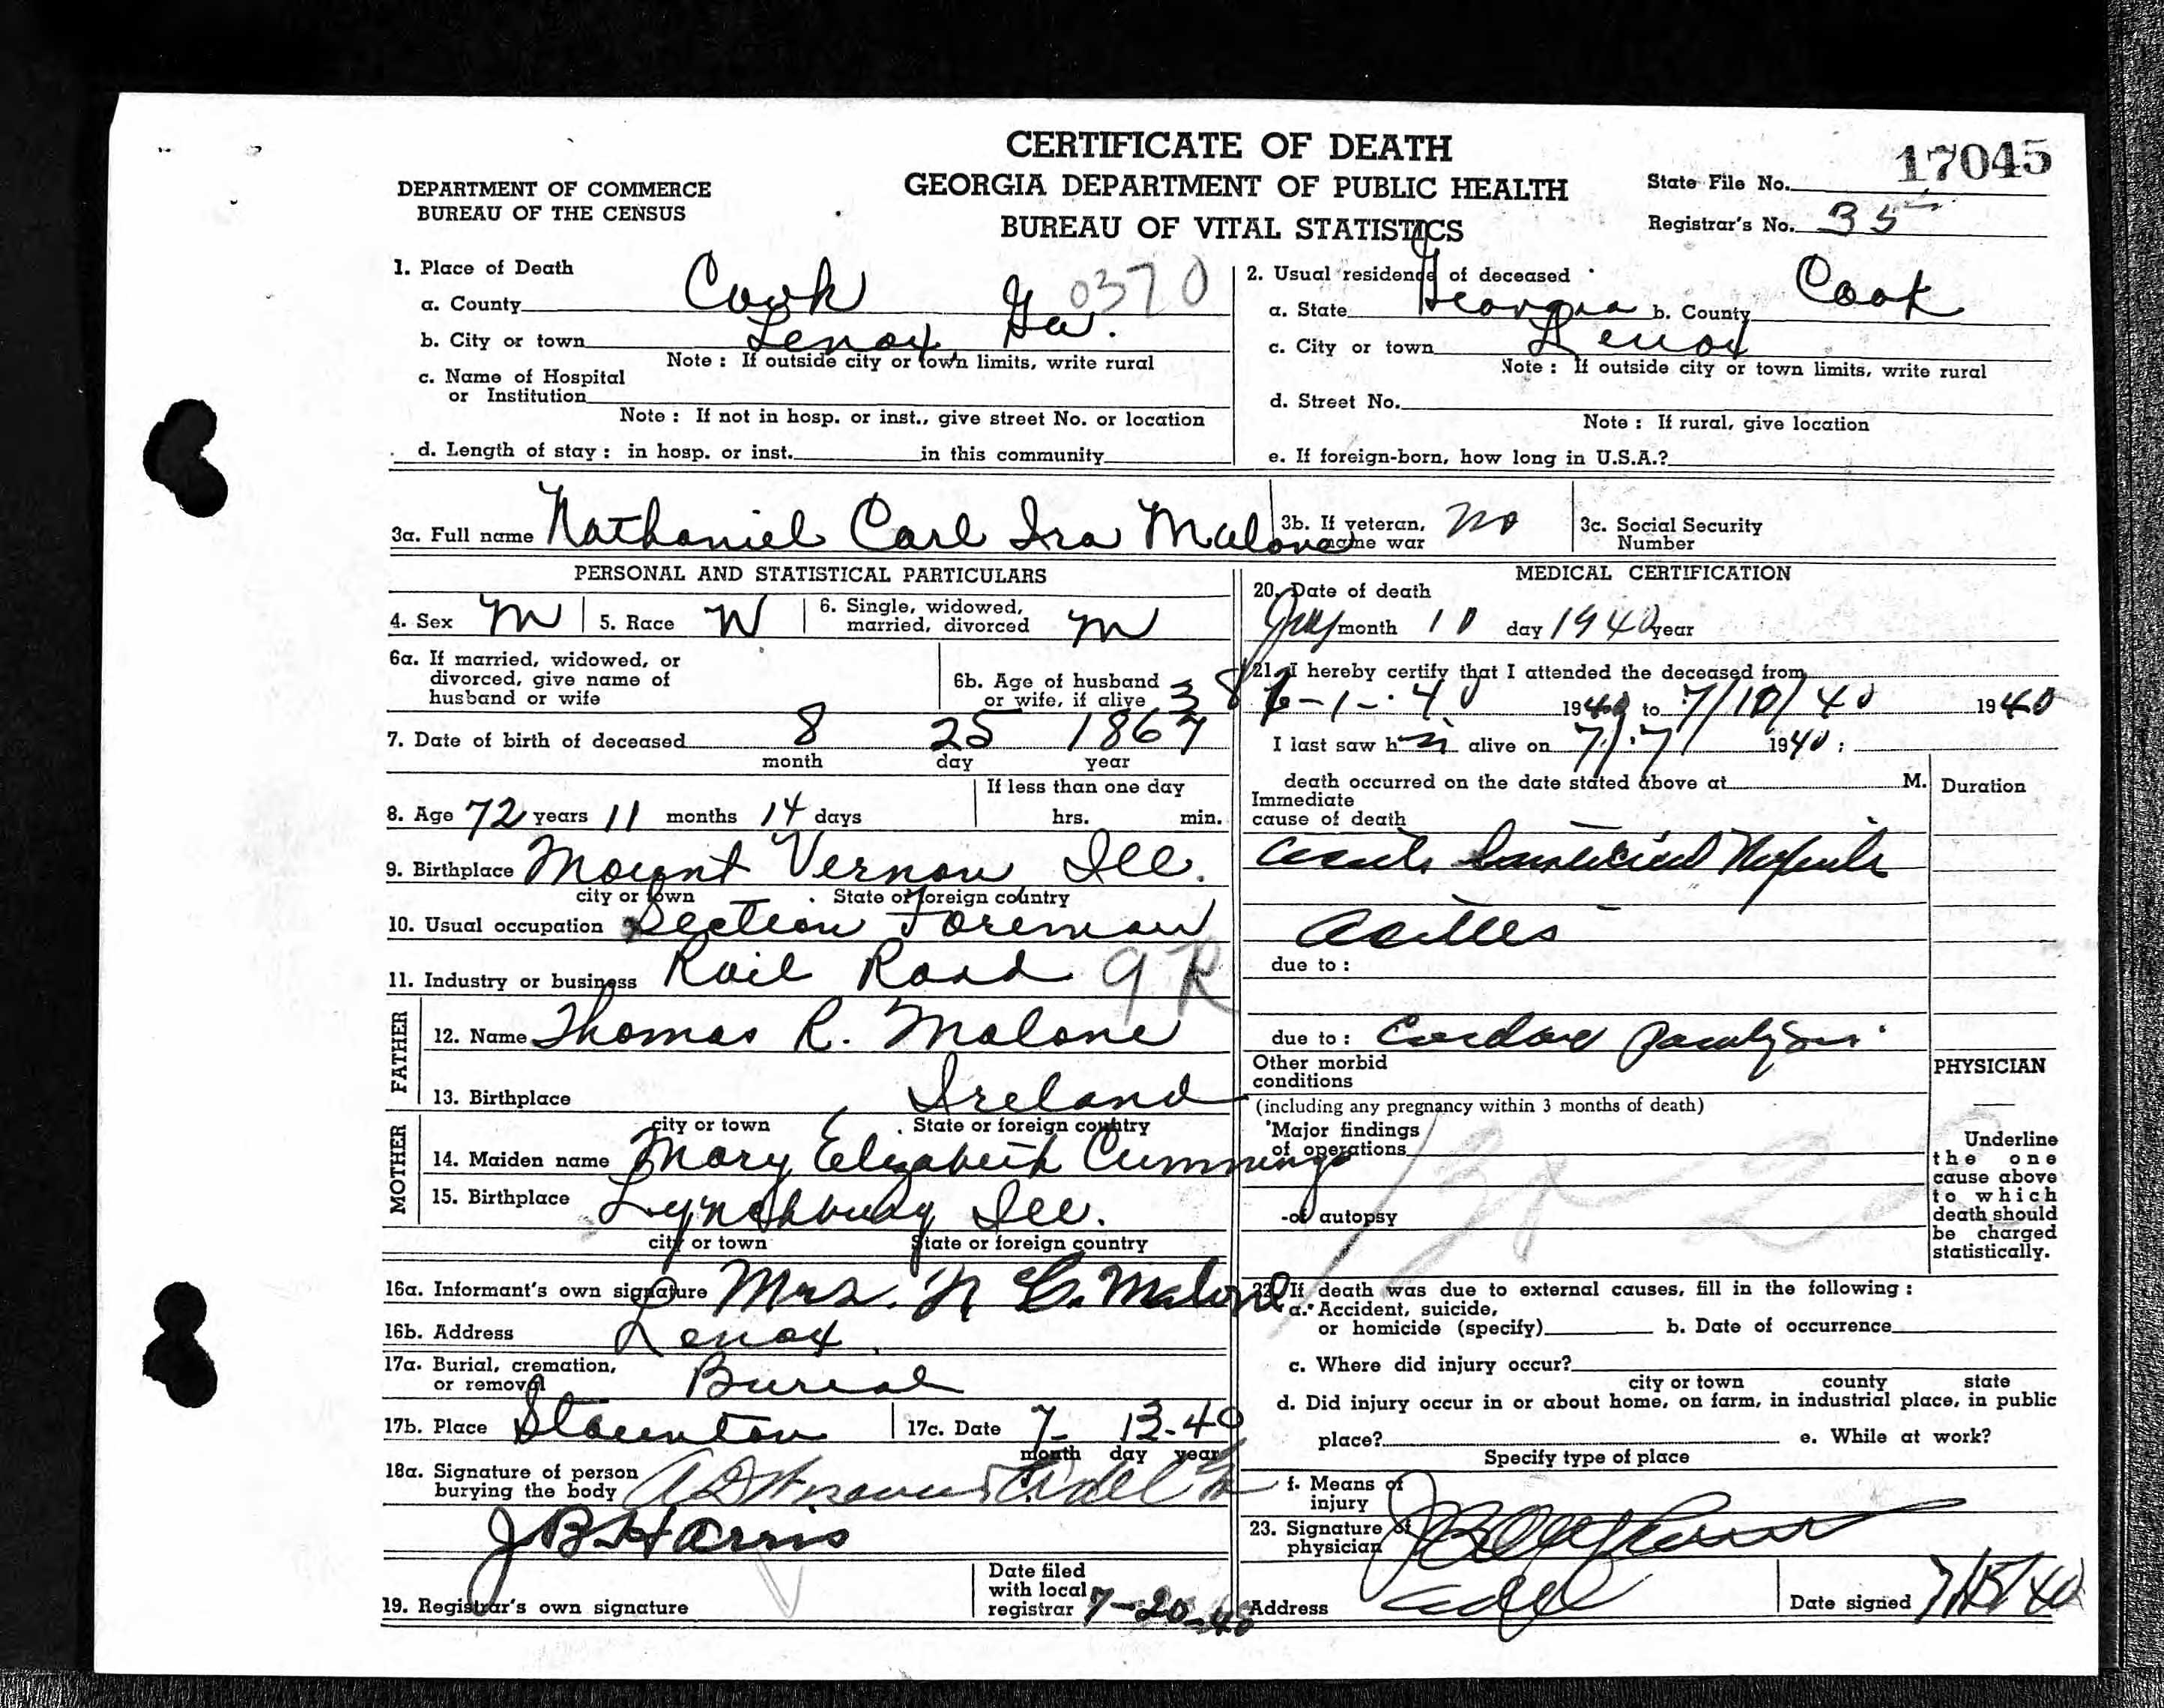 CERTIFICATE OF DEATH
GEORGIA DEPARTMENT OF PUBLIC HEALTH
BUREAU OF VITAL STATISTICS
DEPARTMENT OF COMMERCE
BUREAU OF THE CENSUS
State File No. 17045
Registrar's No. 35
1. Place of Death
a. County Cook Ga. 0370
b. City or town Lenox
Note : If outside city or town limits, write rural
c. Name of Hospital
or Institution
Note : If not in hosp. or inst., give street No. or location
d. Length of stay : in hosp. or inst. in this community
2. Usual residence of deceased
a. State Georgia b. County Cook
c. City or town Lenox
Note : If outside city or town limits, write rural
d. Street No.
Note : If rural, give location
e. If foreign-born, how long in U.S.A.?
3a. Full name Nathaniel Carl Ira Malone
3b. If veteran, name war no
3c. Social Security
Number
PERSONAL AND STATISTICAL PARTICULARS
4. Sex M 5. Race W 6. Single, widowed,
married, divorced M
6a. If married, widowed, or
divorced, give name of
husband or wife
6b. Age of husband
or wife, if alive 38
7. Date of birth of deceased 8 25 1867
month day year
8. Age 72 years 11 months 14 days
If less than one day
hrs. min.
9. Birthplace Mount Vernon Ill.
city or town State or foreign country
10. Usual occupation Section Foreman
11. Industry or business Rail Road 9R
FATHER
12. Name Thomas R. Malone
13. Birthplace Ireland
city or town State or foreign country
MOTHER
14. Maiden name Mary Elizabeth Cummings
15. Birthplace Lynchburg Ill.
city or town State or foreign country
16a. Informant's own signature Mrs. N C. Malone
16b. Address Lenox
17a. Burial, cremation,
or removal Burial
17b. Place Staunton 17c. Date 7- 13-40
month day year
18a. Signature of person
burying the body Adel
J B Harris
19. Registrar's own signature
Date filed
with local
registrar 7-20-40
MEDICAL CERTIFICATION
20. Date of death
July month 10 day 1940 year
21. I hereby certify that I attended the deceased from
-1-40 1940 to 7/10/40 1940
I last saw h alive on 7/7/ 1940 :
death occurred on the date stated above at M.
Duration
Immediate
cause of death
due to :
due to :
Other morbid
conditions
(including any pregnancy within 3 months of death)
Major findings
of operations
of autopsy
PHYSICIAN
Underline
the one
cause above
to which
death should
be charged
statistically.
22. If death was due to external causes, fill in the following :
a. Accident, suicide,
or homicide (specify) b. Date of occurrence
c. Where did injury occur?
city or town county state
d. Did injury occur in or about home, on farm, in industrial place, in public
place? e. While at work?
Specify type of place
f. Means of
injury
23. Signature of
physician
Address Adel Date signed 7/15/40